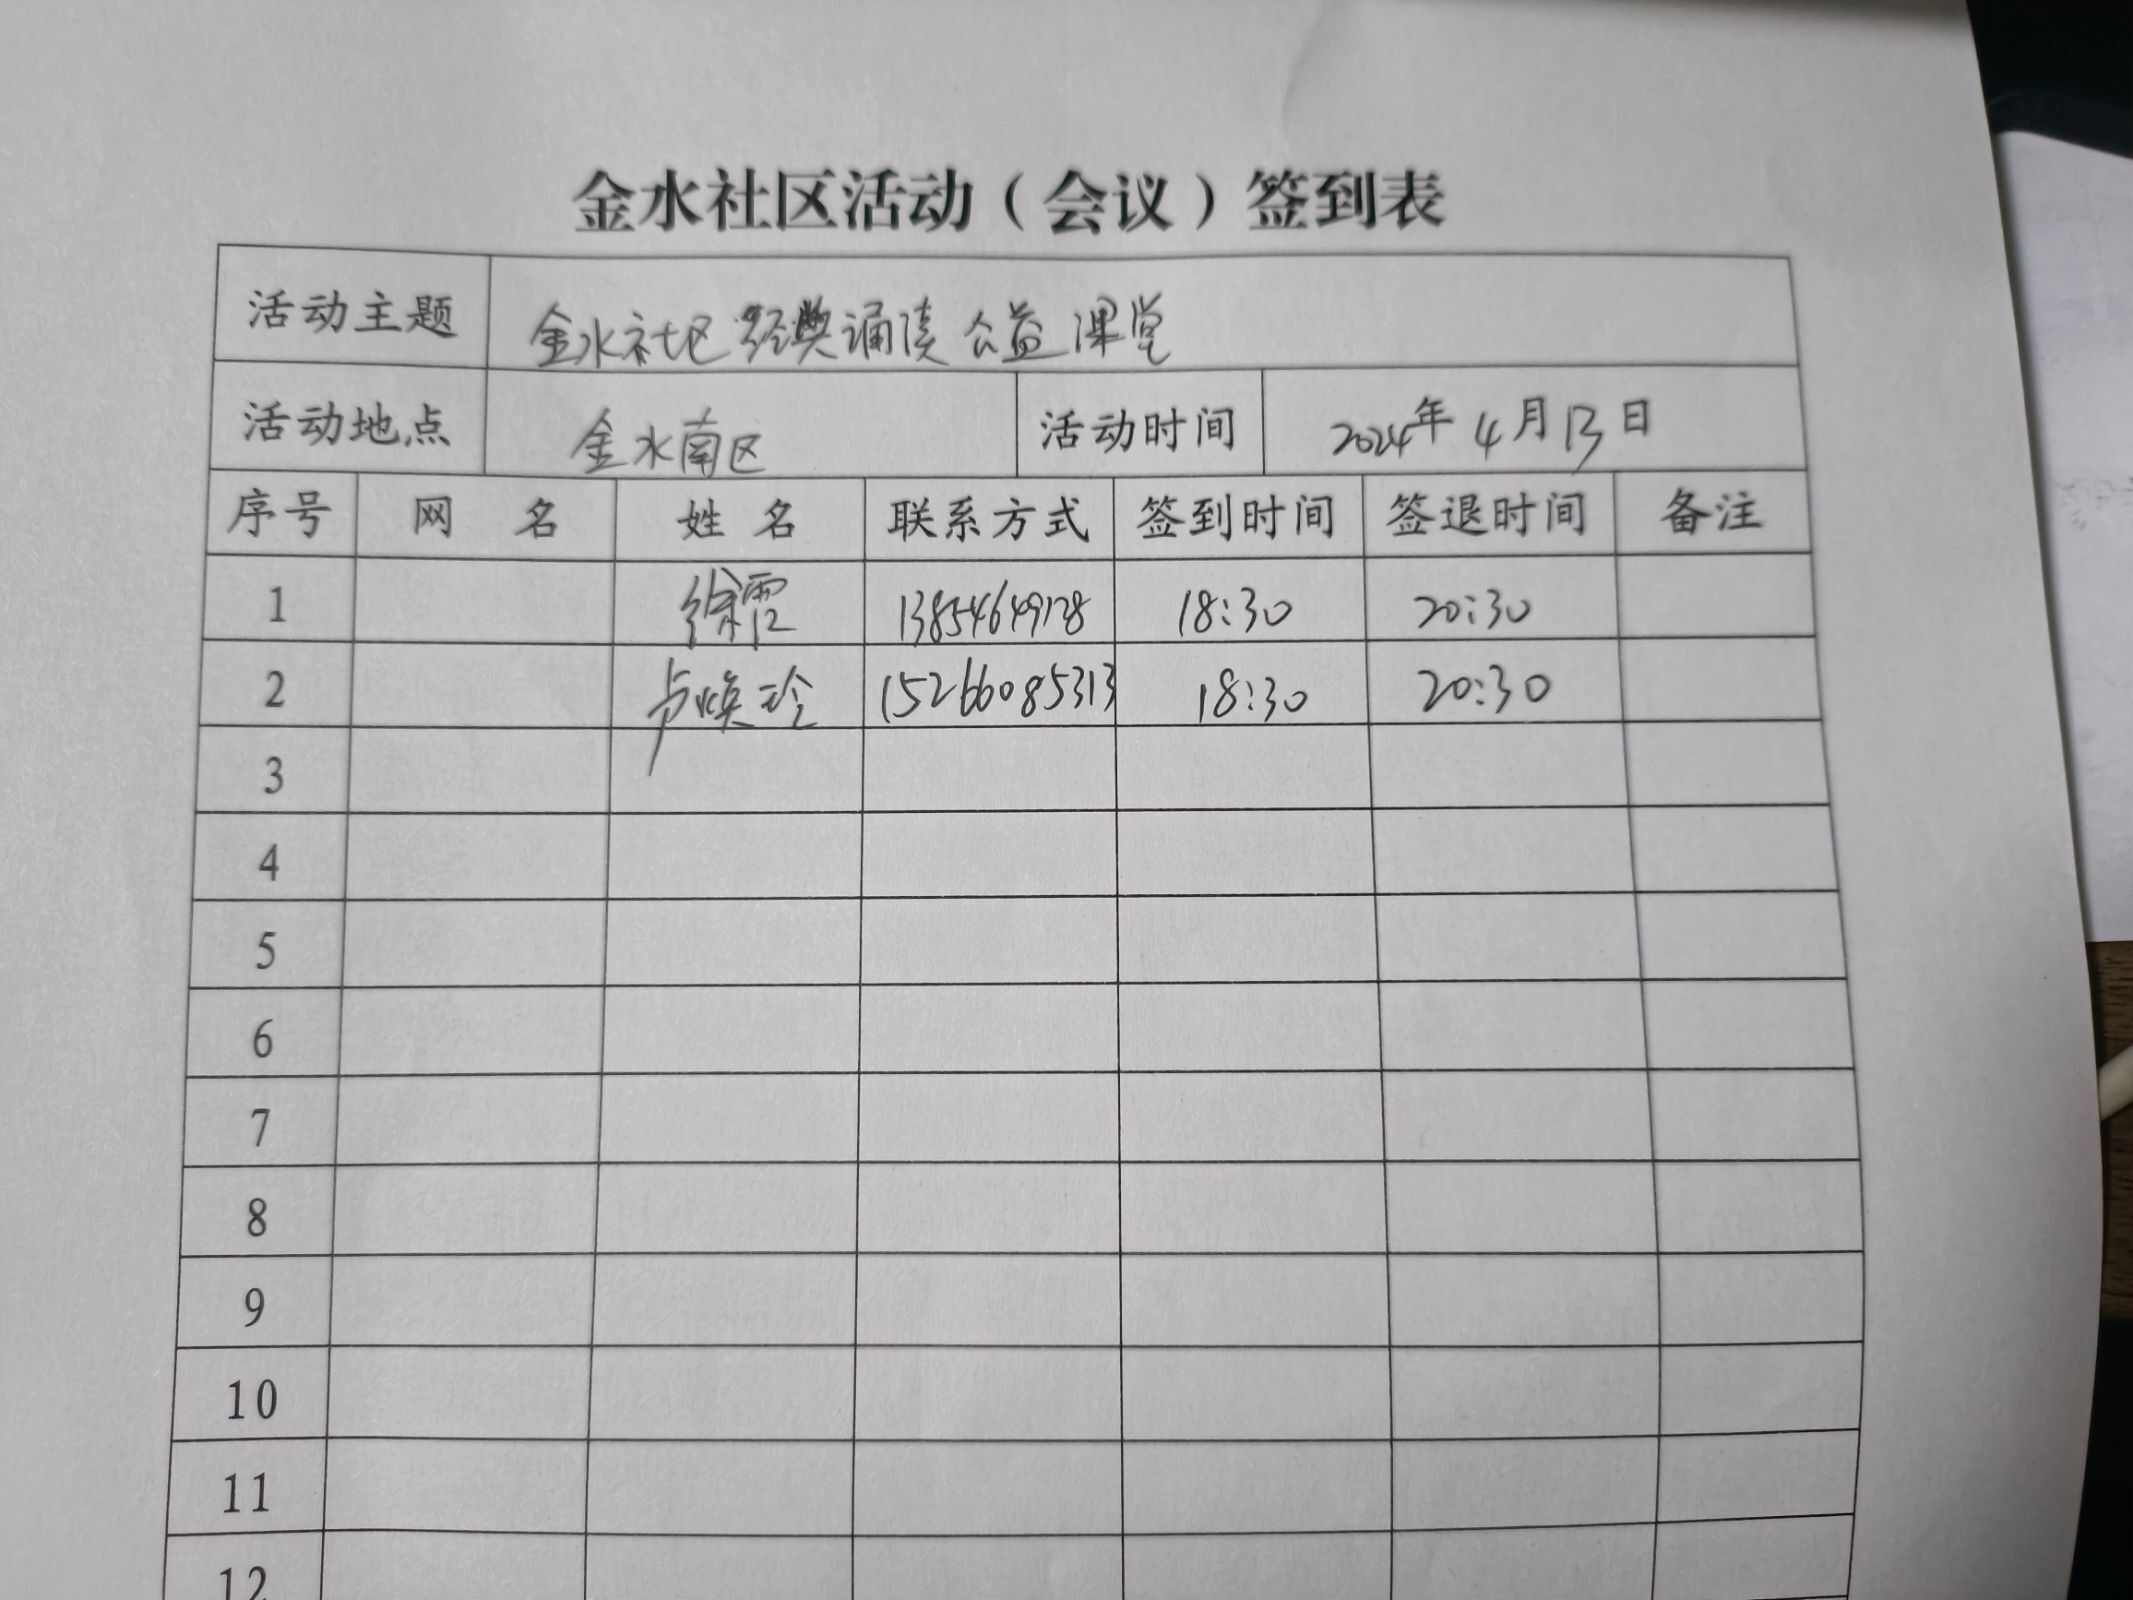 金水社区活动（会议）签到表
活动主题 金水社区经典诵读公益课堂
活动地点 金水南区 活动时间 2024年4月13日
序号 网 名 姓 名 联系方式 签到时间 签退时间 备注
1 徐霞 13854649128 18:30 20:30
2 卢焕玲 15266085313 18:30 20:30
3
4
5
6
7
8
9
10
11
12